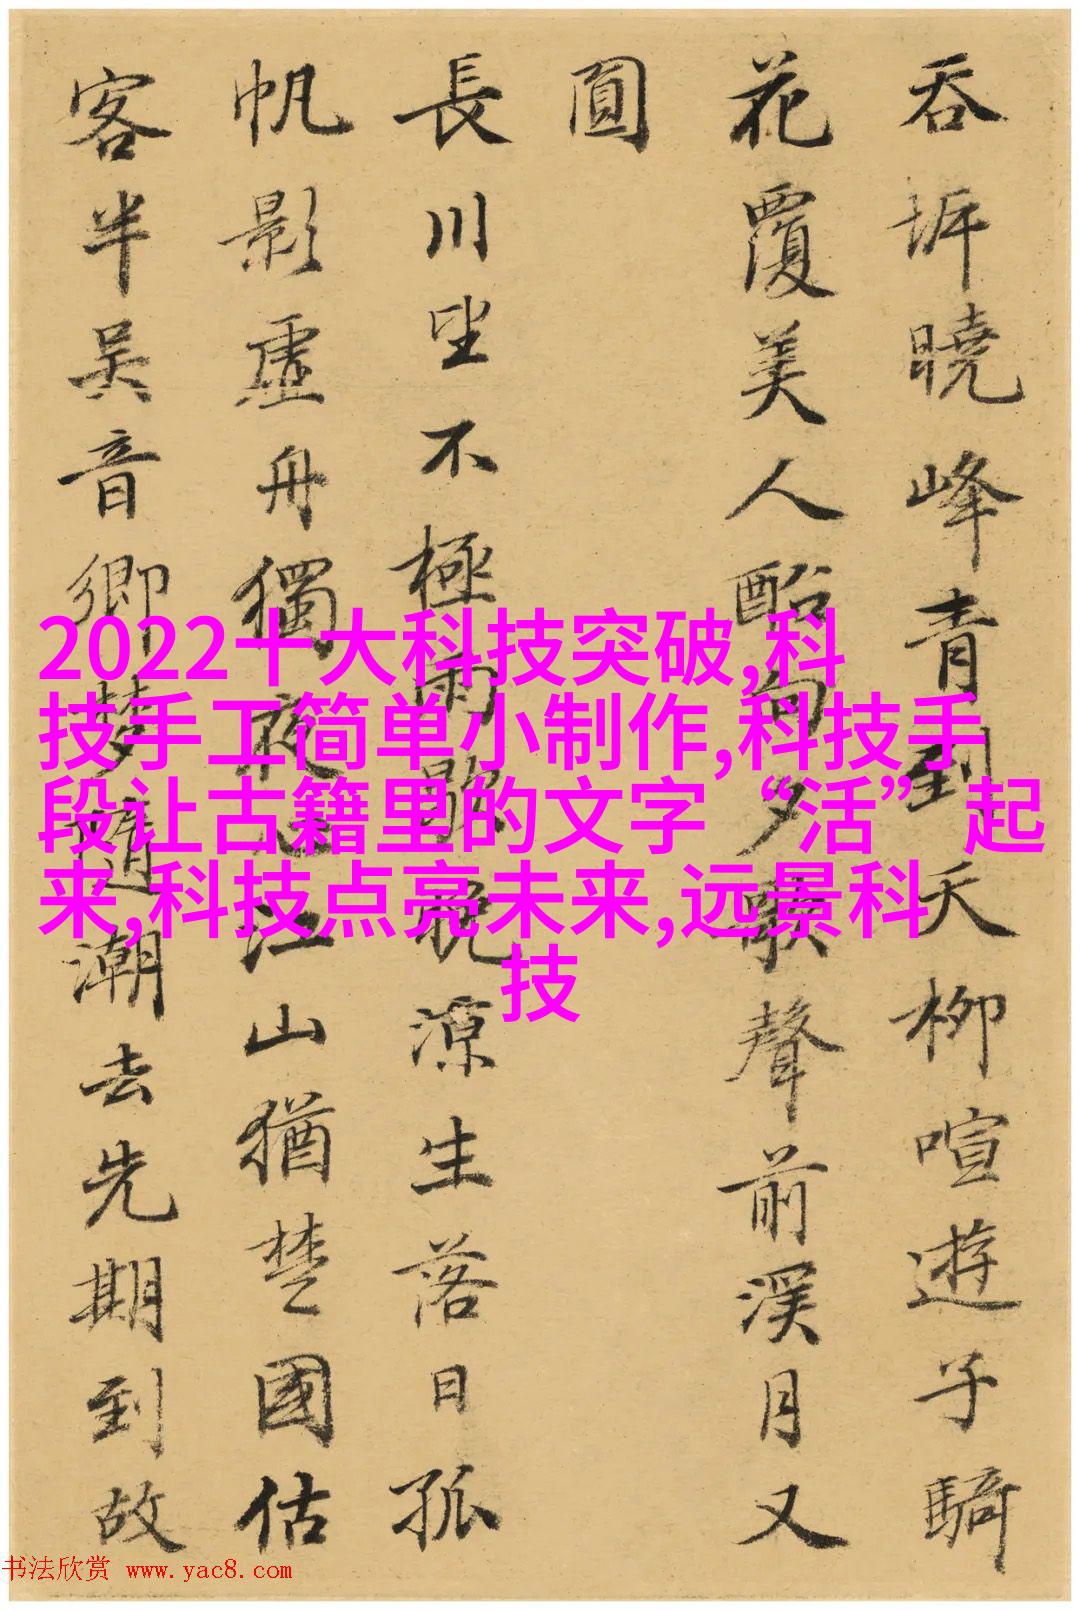 吞坼曉峰青到天柳喧遊子騎
花覆美人船向夕歌聲前溪月又
圓
長川坐不極雨歇晚涼生落日孤
帆影虛舟獨夜心江山猶楚國估
客半吳音鄉夢隨潮去先期到故
2022十大科技突破,科
技手工简单小制作,科技手
段让古籍里的文字“活”起
来,科技点亮未来,远景科
技
书法欣赏 www.yac8.com